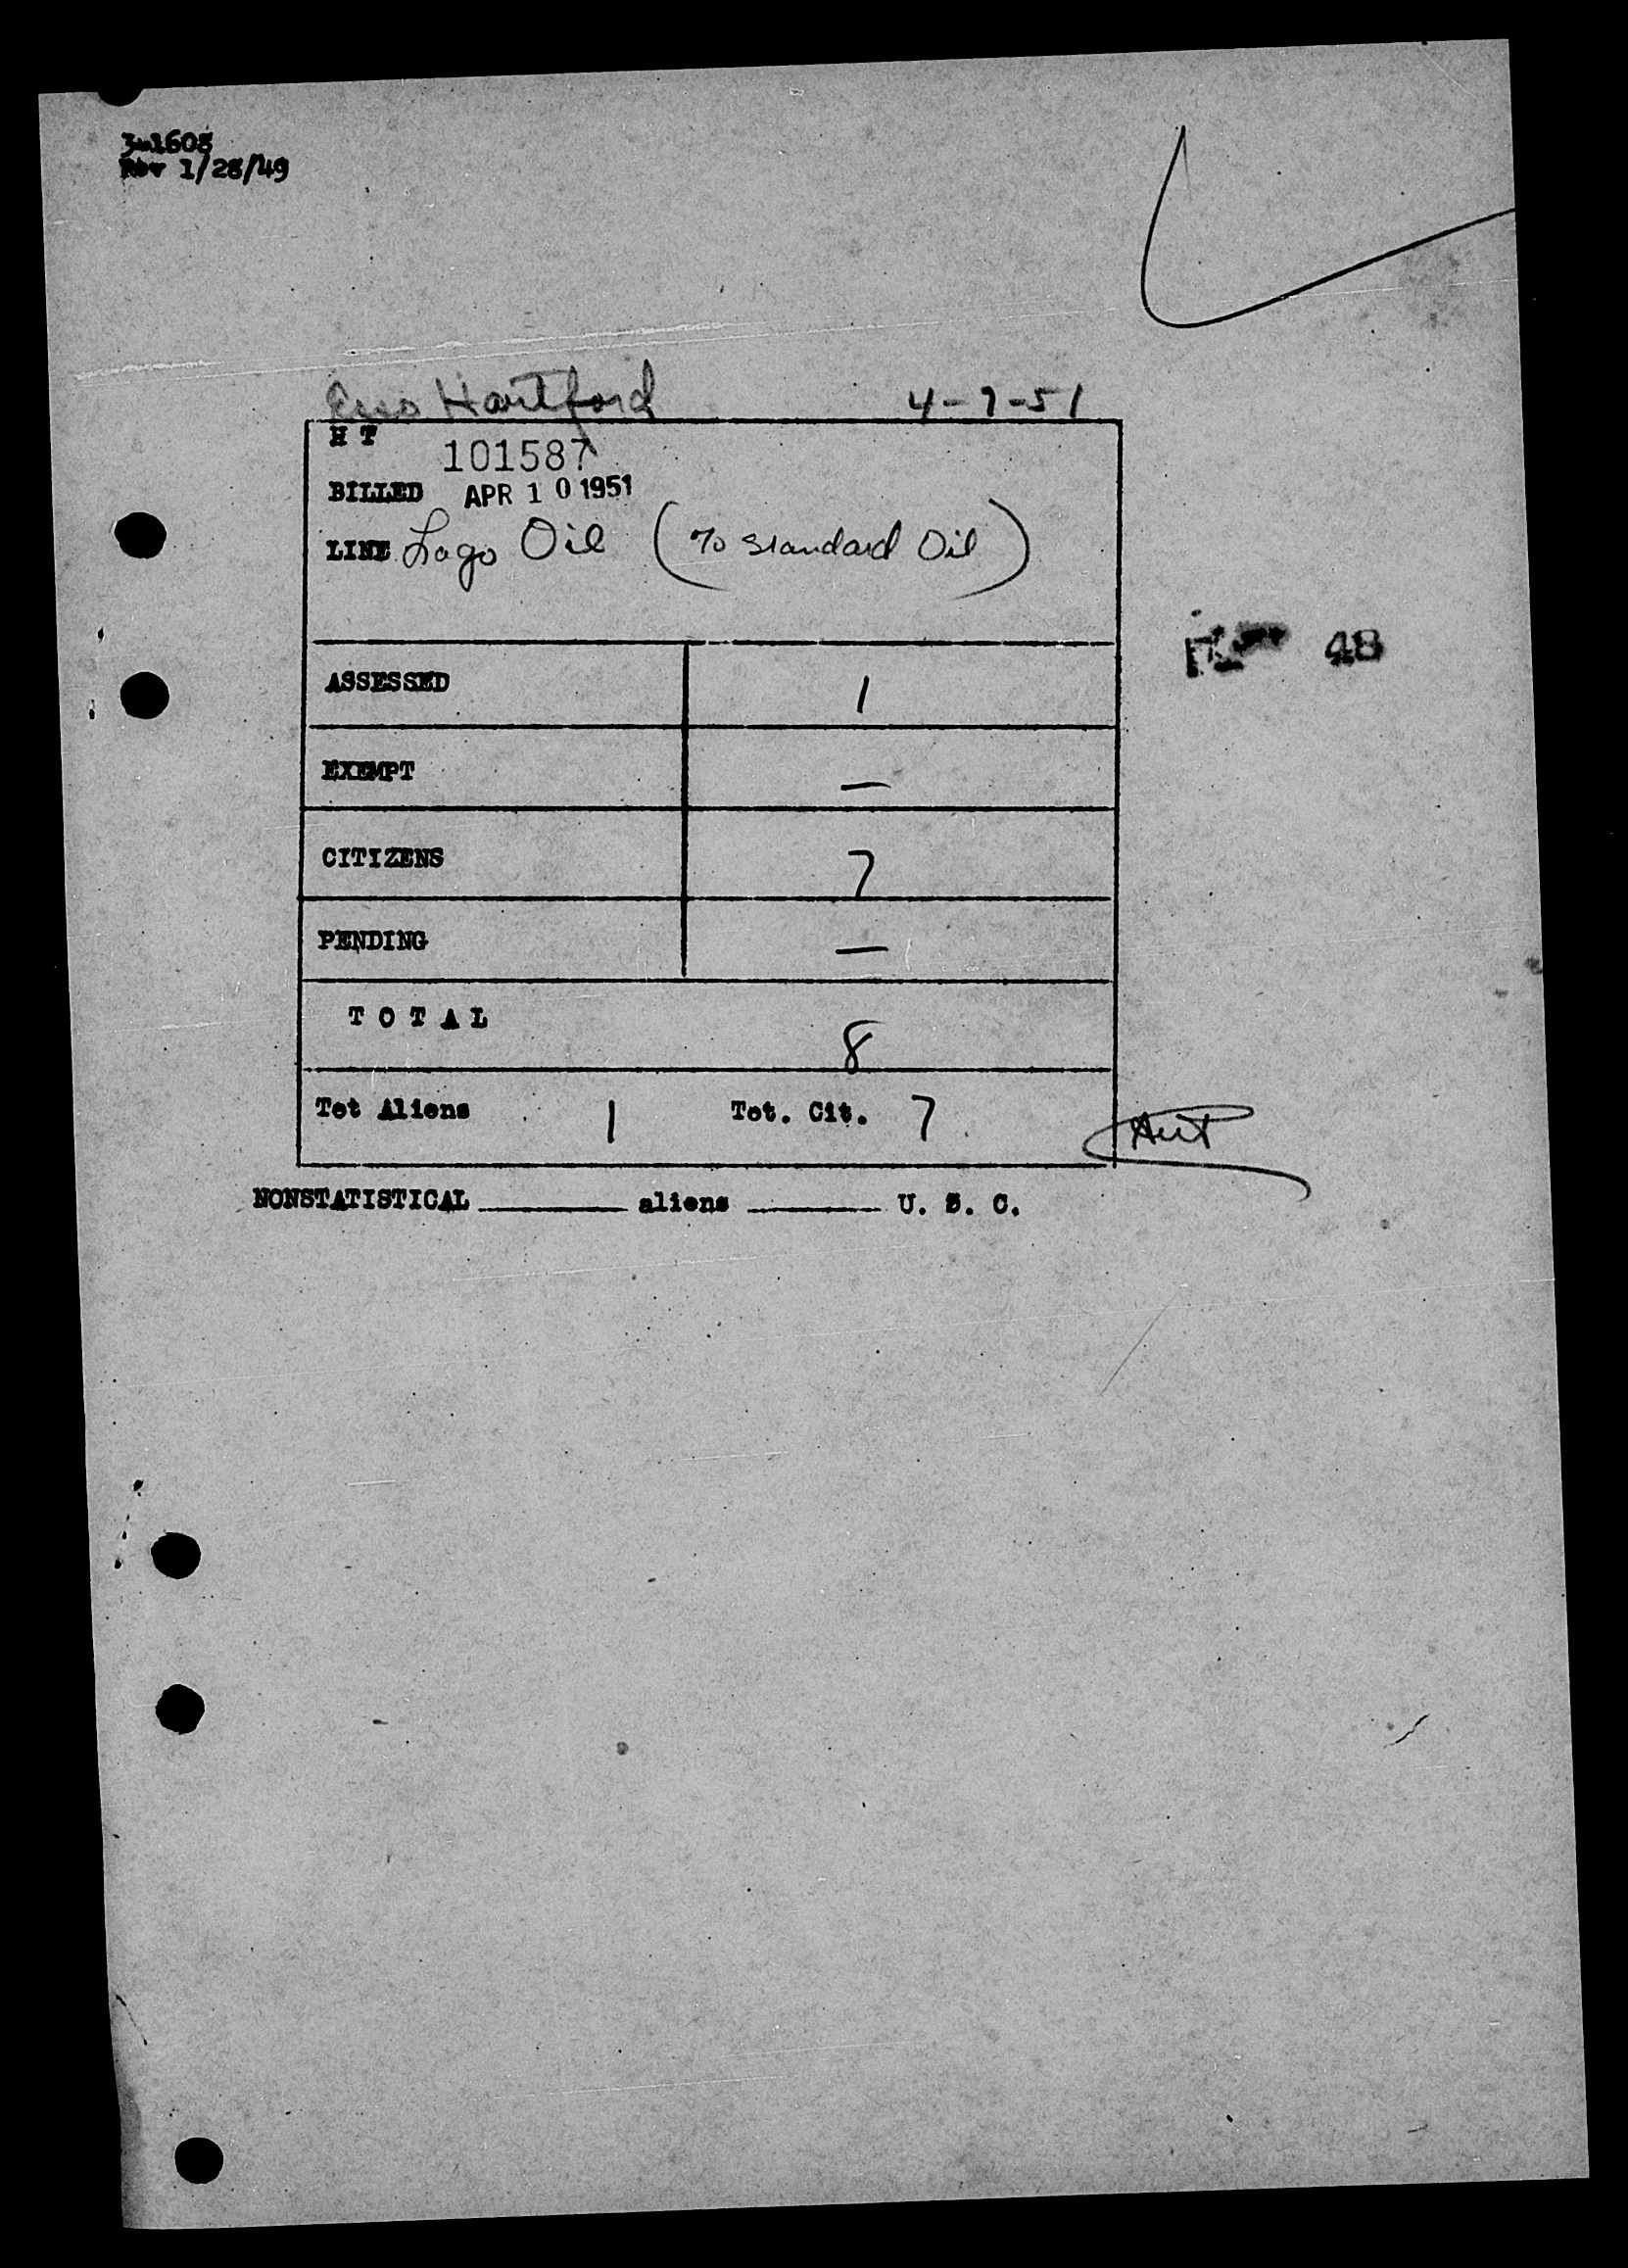 Rev 1/28/49
Esso Hartford 4-7-51
H T 101587
BILLED APR 10 1951
LINE Lago Oil (% Standard Oil)
48
ASSESSED 1
EXEMPT —
CITIZENS 7
PENDING —
TOTAL 8
Tot Aliens 1 Tot. Cit. 7
NONSTATISTICAL ______ aliens ______ U. S. C.